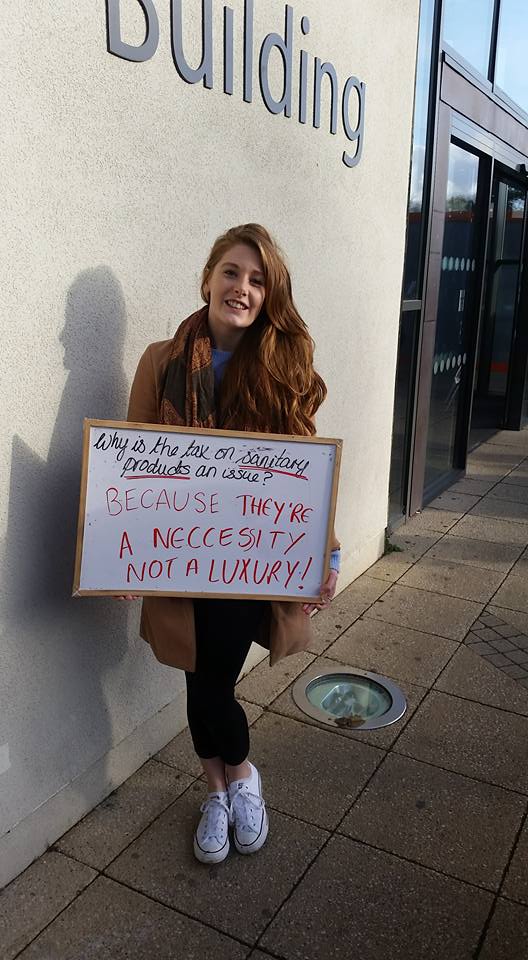 Building
Why is the tax on sanitary
products an issue?
BECAUSE THEY'RE
A NECCESSITY
NOT A LUXURY!